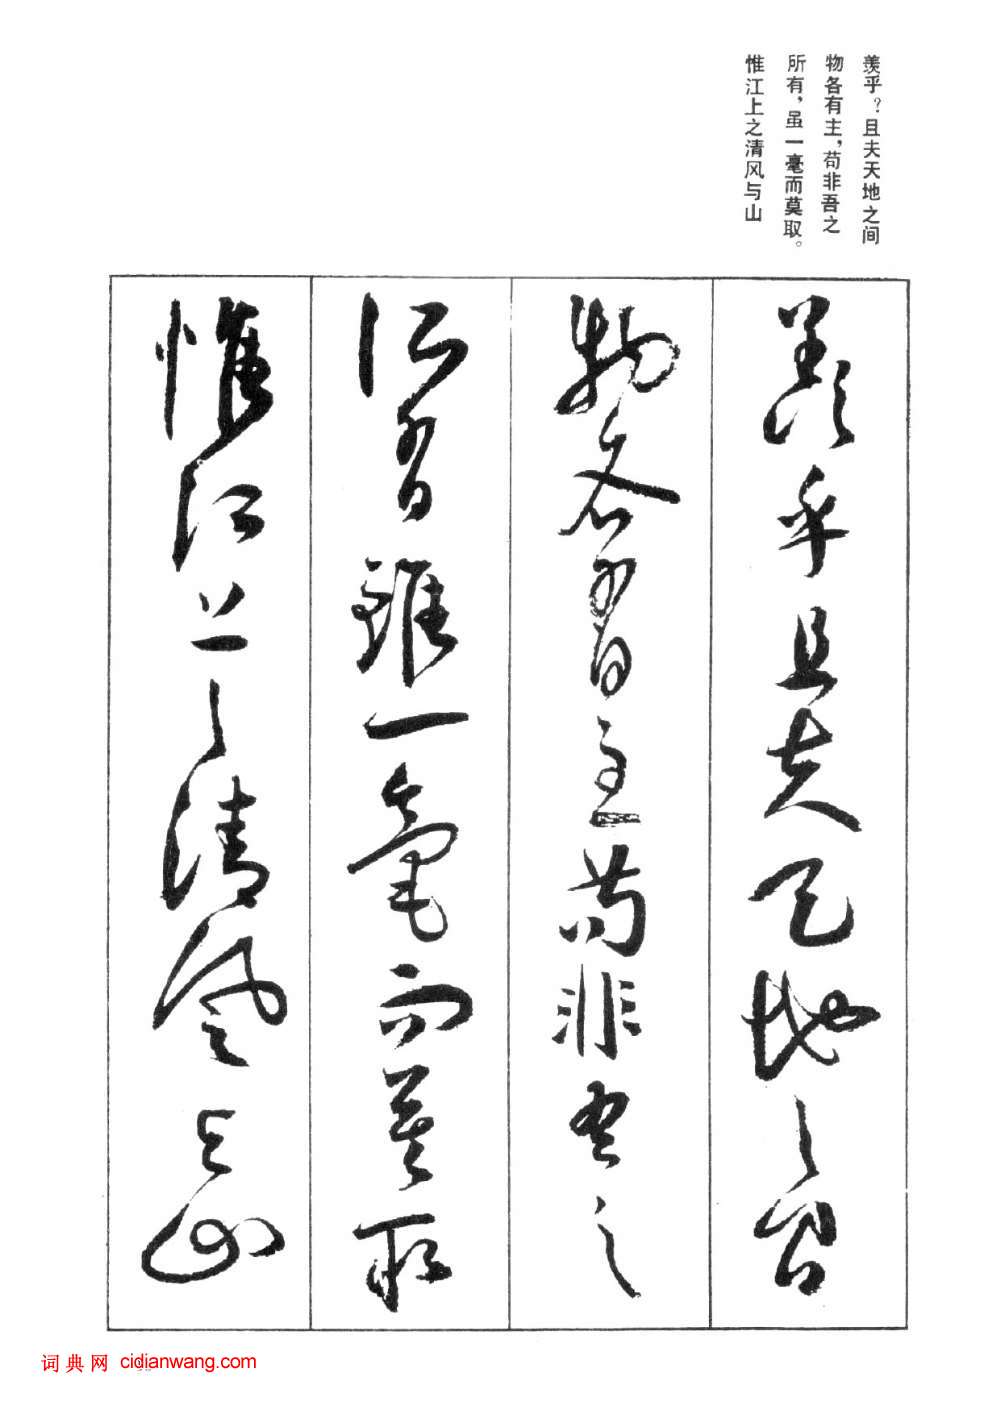 羡乎？且夫天地之间
物各有主，苟非吾之
所有，虽一毫而莫取。
惟江上之清风与山
羡乎且夫天地之间
物各有主苟非吾之
所有雖一毫而莫取
惟江上之清風与山
词典网 cidianwang.com